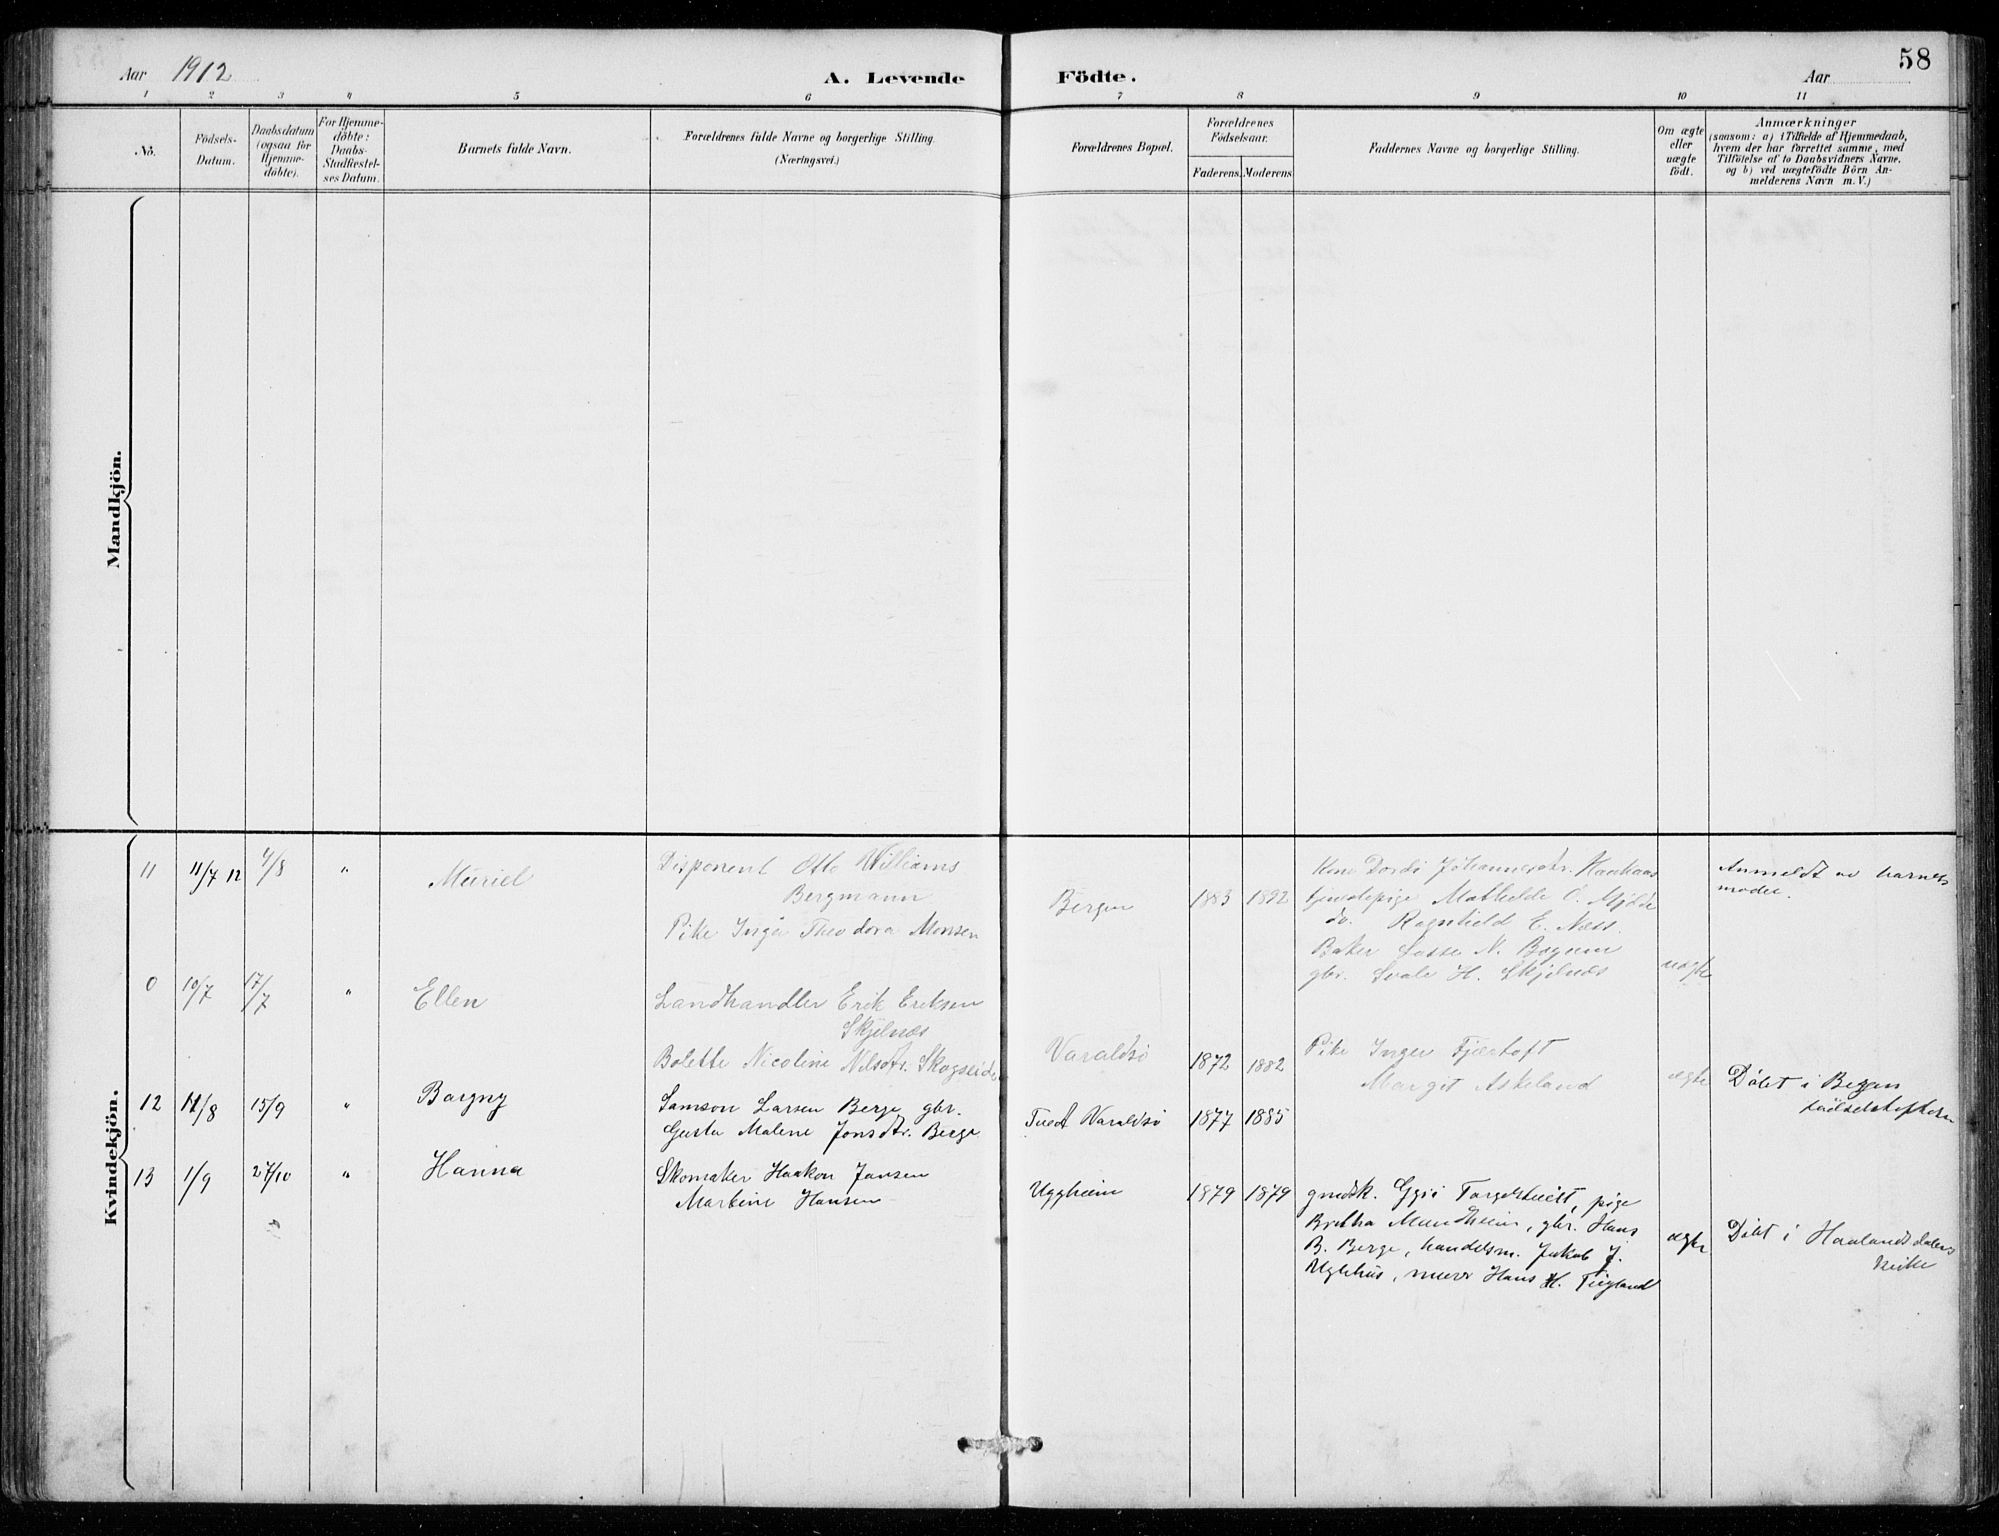 58
Aar 1912
A. Levende
Födte.
Aar
1 2 3 4 5 6 7 8 9 10 11
No.
Födsels-
Datum.
Daabsdatum
(ogsaa for
Hjemme-
döbte).
For Hjemme-
döbte:
Daabs-
Stadfæstel-
ses Datum.
Barnets fulde Navn.
Forældrenes fulde Navne og borgerlige Stilling.
(Næringsvei.)
Forældrenes Bopæl.
Forældrenes
Födselsaar.
Faderens. Moderens
Faddernes Navne og borgerlige Stilling.
Om ægte
eller
uægte
födt.
Anmærkninger
(saasom: a) i Tilfælde af Hjemmedaab,
hvem der har forrettet samme, med
Tilföielse af to Daabsvidners Navne.
og b) ved uægtefödte Börn An-
melderens Navn m. V.)
Mandkjön.
Kvindekjön.
11 11/7 12 4/8 " Muriel
Disponent Otto Williams
Bergmann
Pike Inga Theodora Monsen
Bergen 1883 1892
Kone Dordi Johannesdtr.
tjenestepige Mathilde O. Mjølde
do. Ragnhild E. Næss.
Baker Lasse N.
gbr. H. Skjelnæs
uægte
Anmeldt av barnets
moder.
0 10/7 17/7 " Ellen
Landhandler Erik Eriksen
Skjelnæs
Bolette Nicoline Nilsdtr. Skogseide
Varaldsö 1872 1882
Pike Inger Fjærtoft
Margit Askeland
ægte
Döbt i Bergen
12 11/8 15/9 " Borgny
Samson Larsen Berge gbr.
Gusta Malene Jonsdtr. Berge
Tvedt Varaldsö 1877 1885
13 1/9 27/10 " Hanna
Skomaker Haakon Jansen
Martine Hansen
Uggheim 1879 1879
gmdsk. pige
Britha Mundheim, gbr. Hans
B. Berge, handelsm. Jakob J.
Uglehus, murer Hans H. Teigland
ægte
Döbt i Haalandsdalens
kirke